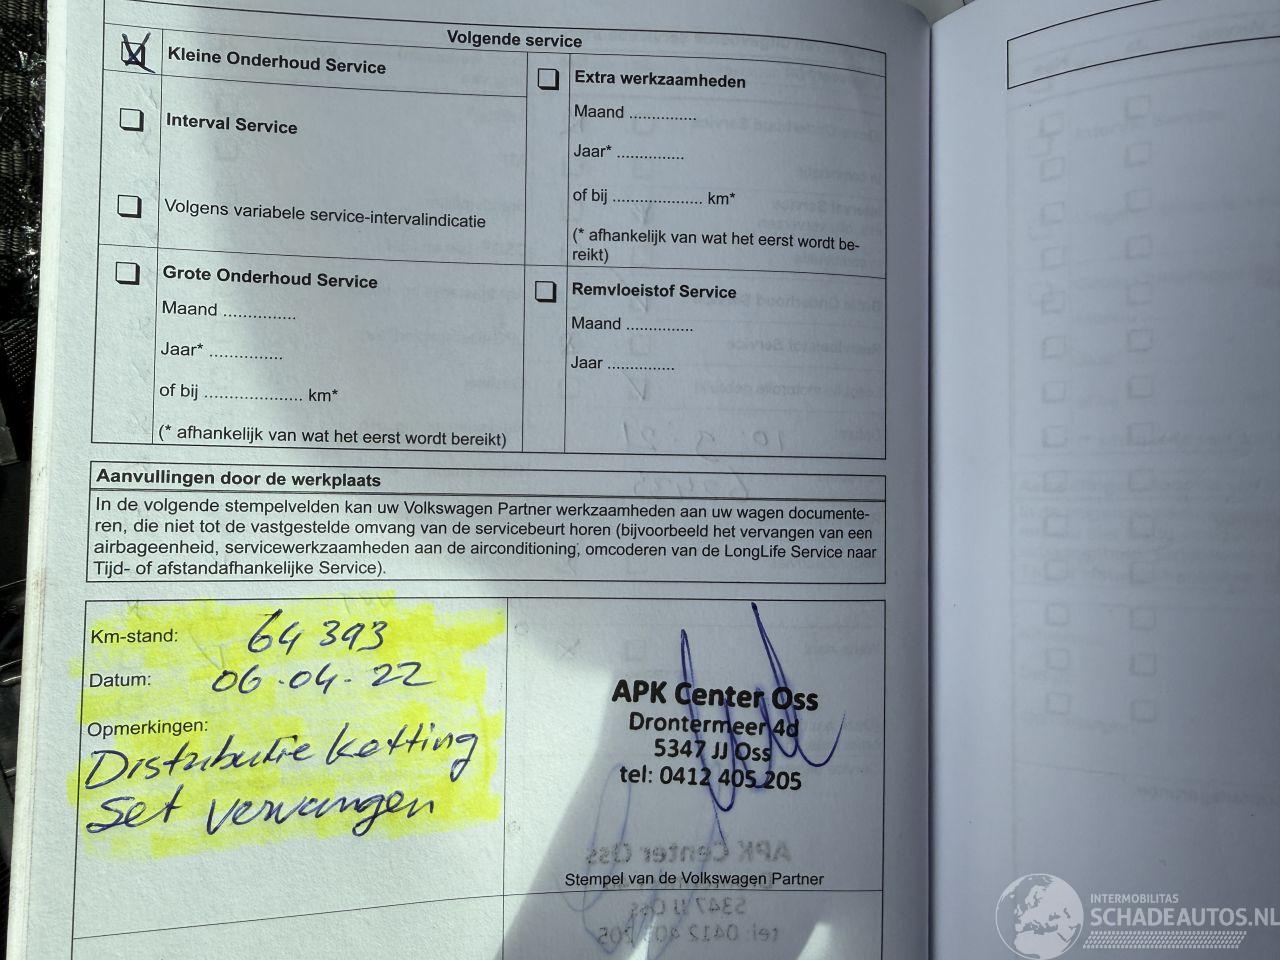 Volgende service
Kleine Onderhoud Service
Interval Service
Volgens variabele service-intervalindicatie
Extra werkzaamheden
Maand ...............
Jaar* ...............
of bij .................... km*
(* afhankelijk van wat het eerst wordt be-
reikt)
Grote Onderhoud Service
Maand ................
Jaar* ................
of bij ...................... km*
(* afhankelijk van wat het eerst wordt bereikt)
Remvloeistof Service
Maand ...............
Jaar ...............
Aanvullingen door de werkplaats
In de volgende stempelvelden kan uw Volkswagen Partner werkzaamheden aan uw wagen documente-
ren, die niet tot de vastgestelde omvang van de servicebeurt horen (bijvoorbeeld het vervangen van een
airbageenheid, servicewerkzaamheden aan de airconditioning, omcoderen van de LongLife Service naar
Tijd- of afstandafhankelijke Service).
Km-stand: 64 393
Datum: 06-04-22
Opmerkingen:
Distributie ketting
set vervangen
APK Center Oss
Drontermeer 4d
5347 JJ Oss
tel: 0412 405 205
Stempel van de Volkswagen Partner
INTERMOBILITAS
SCHADEAUTOS.NL